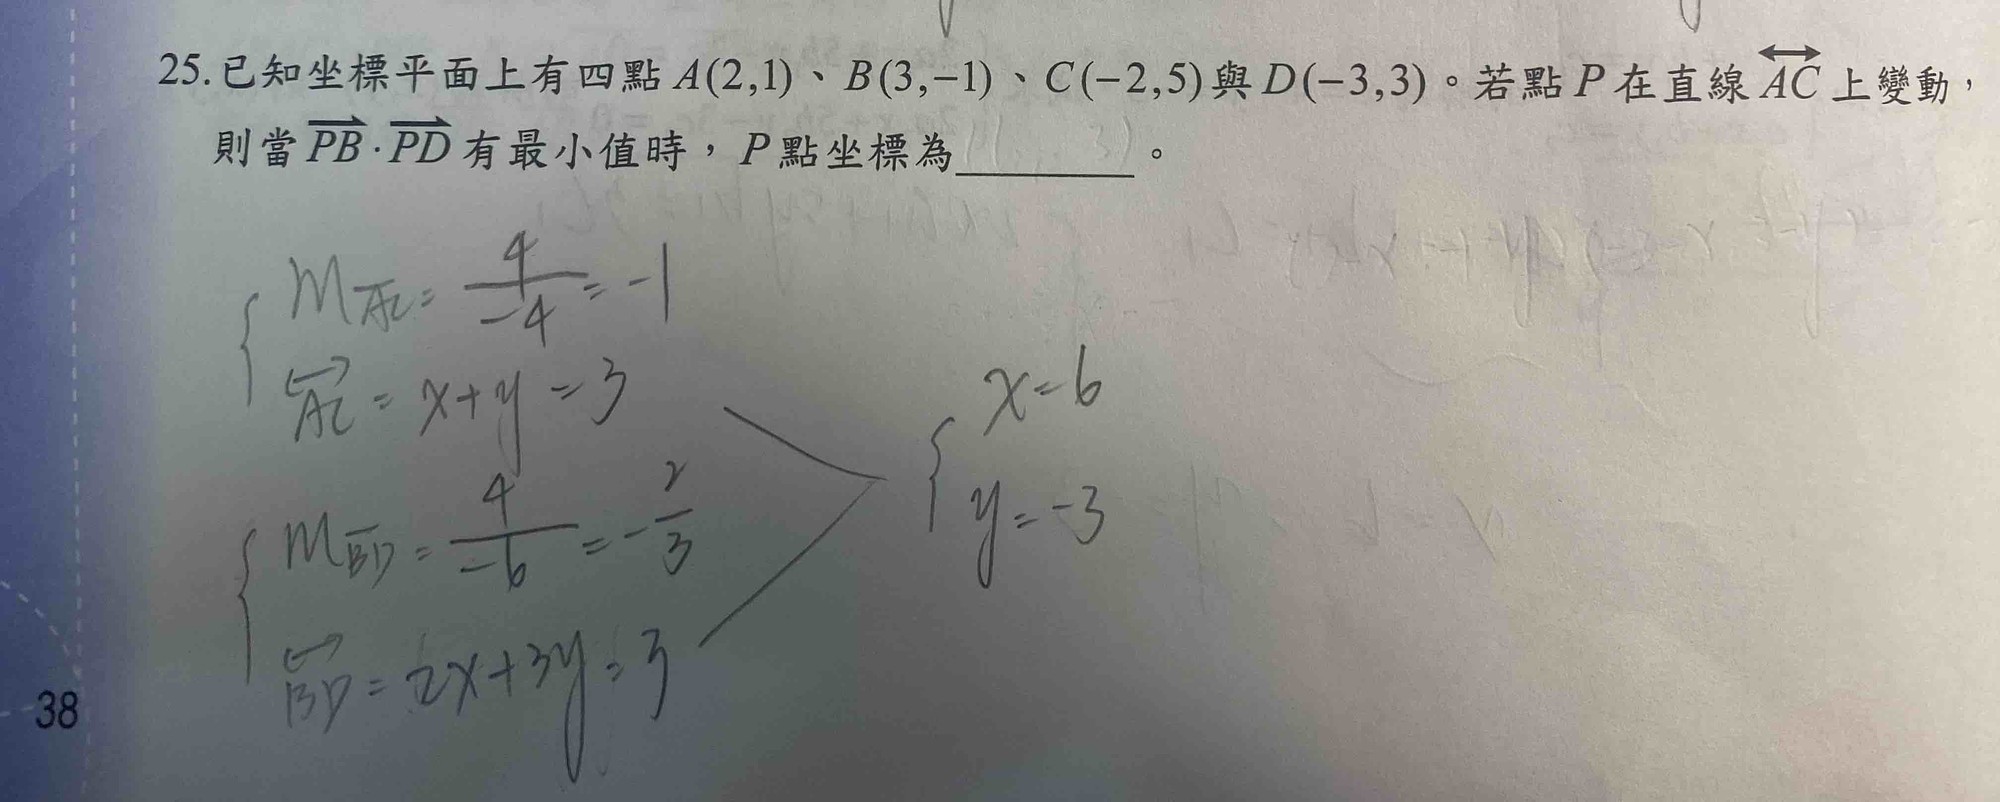 25.已知坐標平面上有四點 A(2,1)、B(3,−1)、C(−2,5)與D(−3,3)。若點P在直線AC上變動,
則當PB·PD有最小值時,P點坐標為________。
m AC = 4/−4 = −1
AC = x+y=3
x=6
y=−3
m BD = 4/−6 = −2/3
BD = 2x+3y=3
38